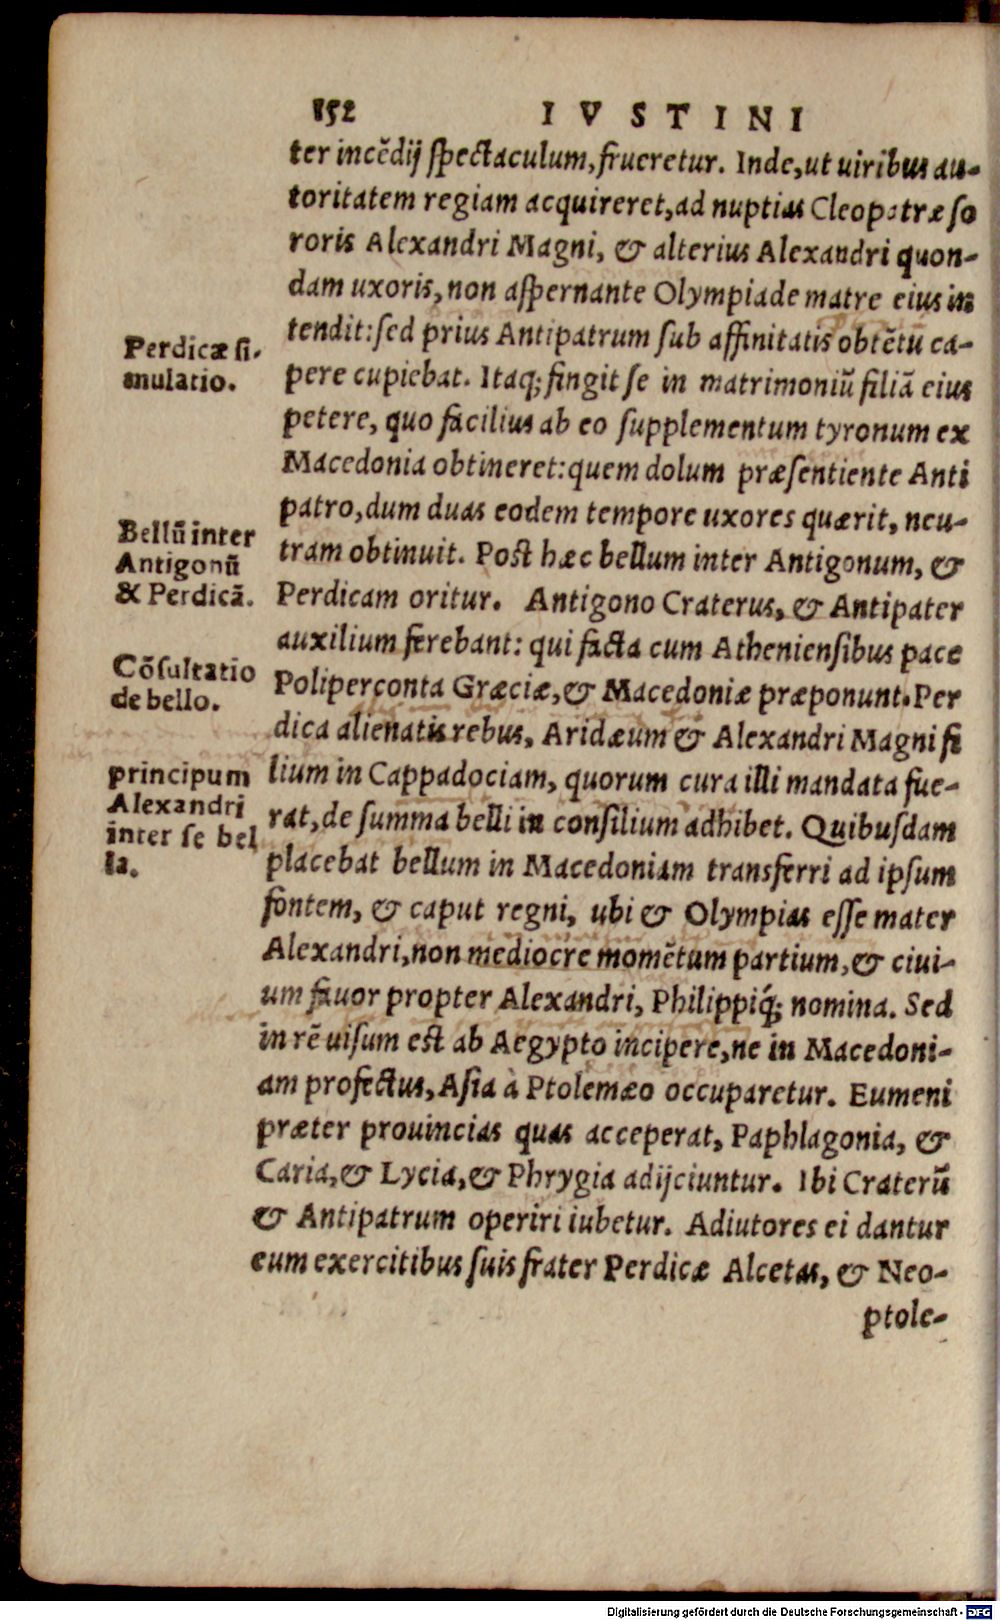 152 IVSTINI
ter incẽdij spectaculum, frueretur. Inde, ut uiribus au-
toritatem regiam acquireret, ad nuptias Cleopatræ so
roris Alexandri Magni, & alterius Alexandri quon-
dam uxoris, non aspernante Olympiade matre eius in
tendit: sed prius Antipatrum sub affinitatis obtẽtu ca-
Perdicæ si-
mulatio.
pere cupiebat. Itaq; fingit se in matrimoniũ filiã eius
petere, quo facilius ab eo supplementum tyronum ex
Macedonia obtineret: quem dolum præsentiente Anti
patro, dum duas eodem tempore uxores quærit, neu-
tram obtinuit. Post hæc bellum inter Antigonum, &
Bellũ inter
Antigonũ
& Perdicã.
Perdicam oritur. Antigono Craterus, & Antipater
auxilium ferebant: qui facta cum Atheniensibus pace
Poliperconta Græciæ, & Macedoniæ præponunt. Per
Cõsultatio
de bello.
dica alienatis rebus, Aridæum & Alexandri Magni fi
lium in Cappadociam, quorum cura illi mandata fue-
rat, de summa belli in consilium adhibet. Quibusdam
principum
Alexandri
inter se bel
la.
placebat bellum in Macedoniam transferri ad ipsum
fontem, & caput regni, ubi & Olympias esse mater
Alexandri, non mediocre momẽtum partium, & ciui-
um fauor propter Alexandri, Philippiq́; nomina. Sed
in rẽ uisum est ab Aegypto incipere, ne in Macedoni-
am profectus, Asia à Ptolemæo occuparetur. Eumeni
præter prouincias quas acceperat, Paphlagonia, &
Caria, & Lycia, & Phrygia adijciuntur. Ibi Craterũ
& Antipatrum operiri iubetur. Adiutores ei dantur
cum exercitibus suis frater Perdicæ Alcetas, & Neo-
ptole-
Digitalisierung gefördert durch die Deutsche Forschungsgemeinschaft - DFG